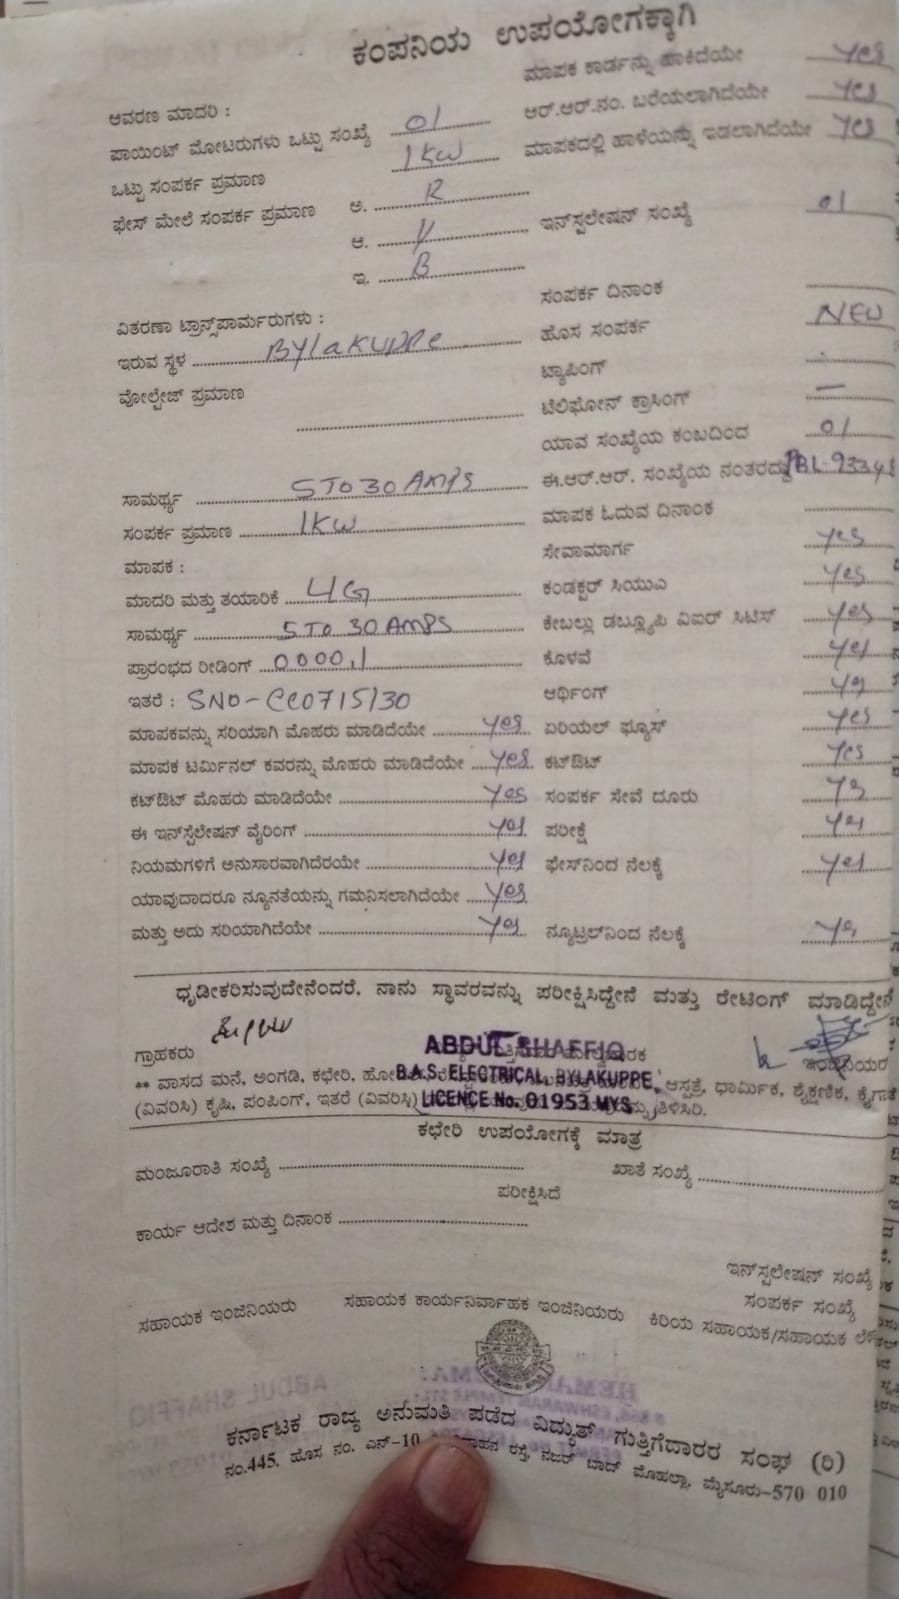 ಕಂಪನಿಯ ಉಪಯೋಗಕ್ಕಾಗಿ
ಆವರಣ ಮಾದರಿ :
ಮಾಪಕ ಕಾರ್ಡನ್ನು ಹಾಕಿದೆಯೇ Yes
ಪಾಯಿಂಟ್ ಮೋಟರುಗಳು ಒಟ್ಟು ಸಂಖ್ಯೆ 01
ಆರ್.ಆರ್.ನಂ. ಬರೆಯಲಾಗಿದೆಯೇ Yes
ಒಟ್ಟು ಸಂಪರ್ಕ ಪ್ರಮಾಣ 1KW
ಮಾಪಕದಲ್ಲಿ ಹಾಳೆಯನ್ನು ಇಡಲಾಗಿದೆಯೇ Yes
ಫೇಸ್ ಮೇಲೆ ಸಂಪರ್ಕ ಪ್ರಮಾಣ ಅ. R
ಇನ್‌ಸ್ಪಲೇಷನ್ ಸಂಖ್ಯೆ 01
ಆ. Y
ಇ. B
ಸಂಪರ್ಕ ದಿನಾಂಕ
ವಿತರಣಾ ಟ್ರಾನ್ಸ್‌ಪಾರ್ಮರುಗಳು :
ಹೊಸ ಸಂಪರ್ಕ NEW
ಇರುವ ಸ್ಥಳ BYlaKUPPe
ಟ್ಯಾಪಿಂಗ್
ವೋಲ್ಟೇಜ್ ಪ್ರಮಾಣ
ಟೆಲಿಫೋನ್ ಕ್ರಾಸಿಂಗ್ —
ಯಾವ ಸಂಖ್ಯೆಯ ಕಂಬದಿಂದ 01
ಸಾಮರ್ಥ್ಯ 5 TO 30 AMPS
ಈ.ಆರ್.ಆರ್. ಸಂಖ್ಯೆಯ ನಂತರದ್ದು
ಸಂಪರ್ಕ ಪ್ರಮಾಣ 1KW
ಮಾಪಕ ಓದುವ ದಿನಾಂಕ
ಮಾಪಕ :
ಸೇವಾಮಾರ್ಗ Yes
ಮಾದರಿ ಮತ್ತು ತಯಾರಿಕೆ
ಕಂಡಕ್ಟರ್ ಸಿಯುಎ Yes
ಸಾಮರ್ಥ್ಯ 5 TO 30 AMPS
ಕೇಬಲ್ಲು ಡಬ್ಲ್ಯೂಪಿ ವಿಐರ್ ಸಿಟಿಸ್ Yes
ಪ್ರಾರಂಭದ ರೀಡಿಂಗ್ 0000.1
ಕೊಳವೆ Yes
ಇತರೆ : SNO-CC0715130
ಆರ್ಥಿಂಗ್ Yes
ಮಾಪಕವನ್ನು ಸರಿಯಾಗಿ ಮೊಹರು ಮಾಡಿದೆಯೇ Yes
ಏರಿಯಲ್ ಫ್ಯೂಸ್ Yes
ಮಾಪಕ ಟರ್ಮಿನಲ್ ಕವರನ್ನು ಮೊಹರು ಮಾಡಿದೆಯೇ Yes
ಕಟ್‌ಔಟ್ Yes
ಕಟ್‌ಔಟ್ ಮೊಹರು ಮಾಡಿದೆಯೇ Yes
ಸಂಪರ್ಕ ಸೇವೆ ದೂರು Yes
ಈ ಇನ್‌ಸ್ಪೆಲೇಷನ್ ವೈರಿಂಗ್ Yes
ಪರೀಕ್ಷೆ Yes
ನಿಯಮಗಳಿಗೆ ಅನುಸಾರವಾಗಿದೆರಯೇ Yes
ಫೇಸ್‌ನಿಂದ ನೆಲಕ್ಕೆ Yes
ಯಾವುದಾದರೂ ನ್ಯೂನತೆಯನ್ನು ಗಮನಿಸಲಾಗಿದೆಯೇ Yes
ಮತ್ತು ಅದು ಸರಿಯಾಗಿದೆಯೇ Yes
ನ್ಯೂಟ್ರಲ್‌ನಿಂದ ನೆಲಕ್ಕೆ Yes
ಧೃಡೀಕರಿಸುವುದೇನೆಂದರೆ, ನಾನು ಸ್ಥಾವರವನ್ನು ಪರೀಕ್ಷಿಸಿದ್ದೇನೆ ಮತ್ತು ರೇಟಿಂಗ್ ಮಾಡಿದ್ದೇನೆ
ಗ್ರಾಹಕರು
ABDUL SHAFFIQ
B.A.S. ELECTRICAL, BYLAKUPPE,
LICENCE No. 01953 MYS
** ವಾಸದ ಮನೆ, ಅಂಗಡಿ, ಕಛೇರಿ, ಆಸ್ಪತ್ರೆ, ಧಾರ್ಮಿಕ, ಶೈಕ್ಷಣಿಕ,
(ವಿವರಿಸಿ) ಕೃಷಿ, ಪಂಪಿಂಗ್, ಇತರೆ (ವಿವರಿಸಿ) ತಿಳಿಸಿರಿ.
ಕಛೇರಿ ಉಪಯೋಗಕ್ಕೆ ಮಾತ್ರ
ಮಂಜೂರಾತಿ ಸಂಖ್ಯೆ
ಖಾತೆ ಸಂಖ್ಯೆ
ಪರೀಕ್ಷಿಸಿದೆ
ಕಾರ್ಯ ಆದೇಶ ಮತ್ತು ದಿನಾಂಕ
ಇನ್‌ಸ್ಪಲೇಷನ್ ಸಂಖ್ಯೆ
ಸಂಪರ್ಕ ಸಂಖ್ಯೆ
ಸಹಾಯಕ ಇಂಜಿನಿಯರು
ಸಹಾಯಕ ಕಾರ್ಯನಿರ್ವಾಹಕ ಇಂಜಿನಿಯರು
ಕಿರಿಯ ಸಹಾಯಕ/ಸಹಾಯಕ
ಕರ್ನಾಟಕ ರಾಜ್ಯ ಅನುಮತಿ ಪಡೆದ ವಿದ್ಯುತ್ ಗುತ್ತಿಗೆದಾರರ ಸಂಘ (ರಿ)
ನಂ.445, ಹೊಸ ನಂ. ಎನ್-10 ರಸ್ತೆ, ನಜರ್ ಬಾದ್ ಮೊಹಲ್ಲಾ, ಮೈಸೂರು-570 010